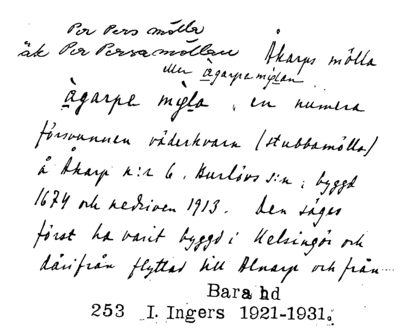 Per Pers mölla
äk Per Persamöllan Åkarps mölla
eller àgarpa miglan
àgarpa migla, en numera
försvunnen väderkvarn (stubbamölla)
å Åkarp n:r 6. Burlövs s:n, byggd
1674 och nedriven 1913. Den säges
först ha varit byggd i Helsingör och
därifrån flyttad till Alnarp och från
Bara hd
253 I. Ingers 1921-1931.